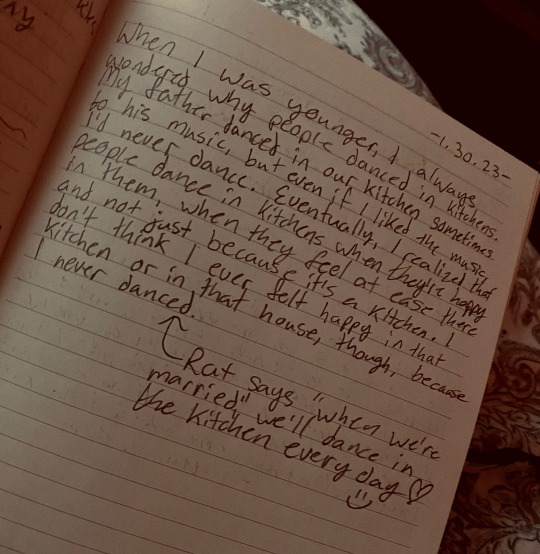 -1.30.23-
When I was younger, I always
wondered why people danced in kitchens.
My father danced in our kitchen sometimes
to his music, but even if I liked the music
I'd never dance. Eventually, I realized that
people dance in kitchens when they're happy
in them, when they feel at ease there
and not just because it's a kitchen. I
don't think I ever felt happy in that
kitchen or in that house, though, because
I never danced.
Rat says "when we're
married" we'll dance in
the kitchen every day ♡
:)